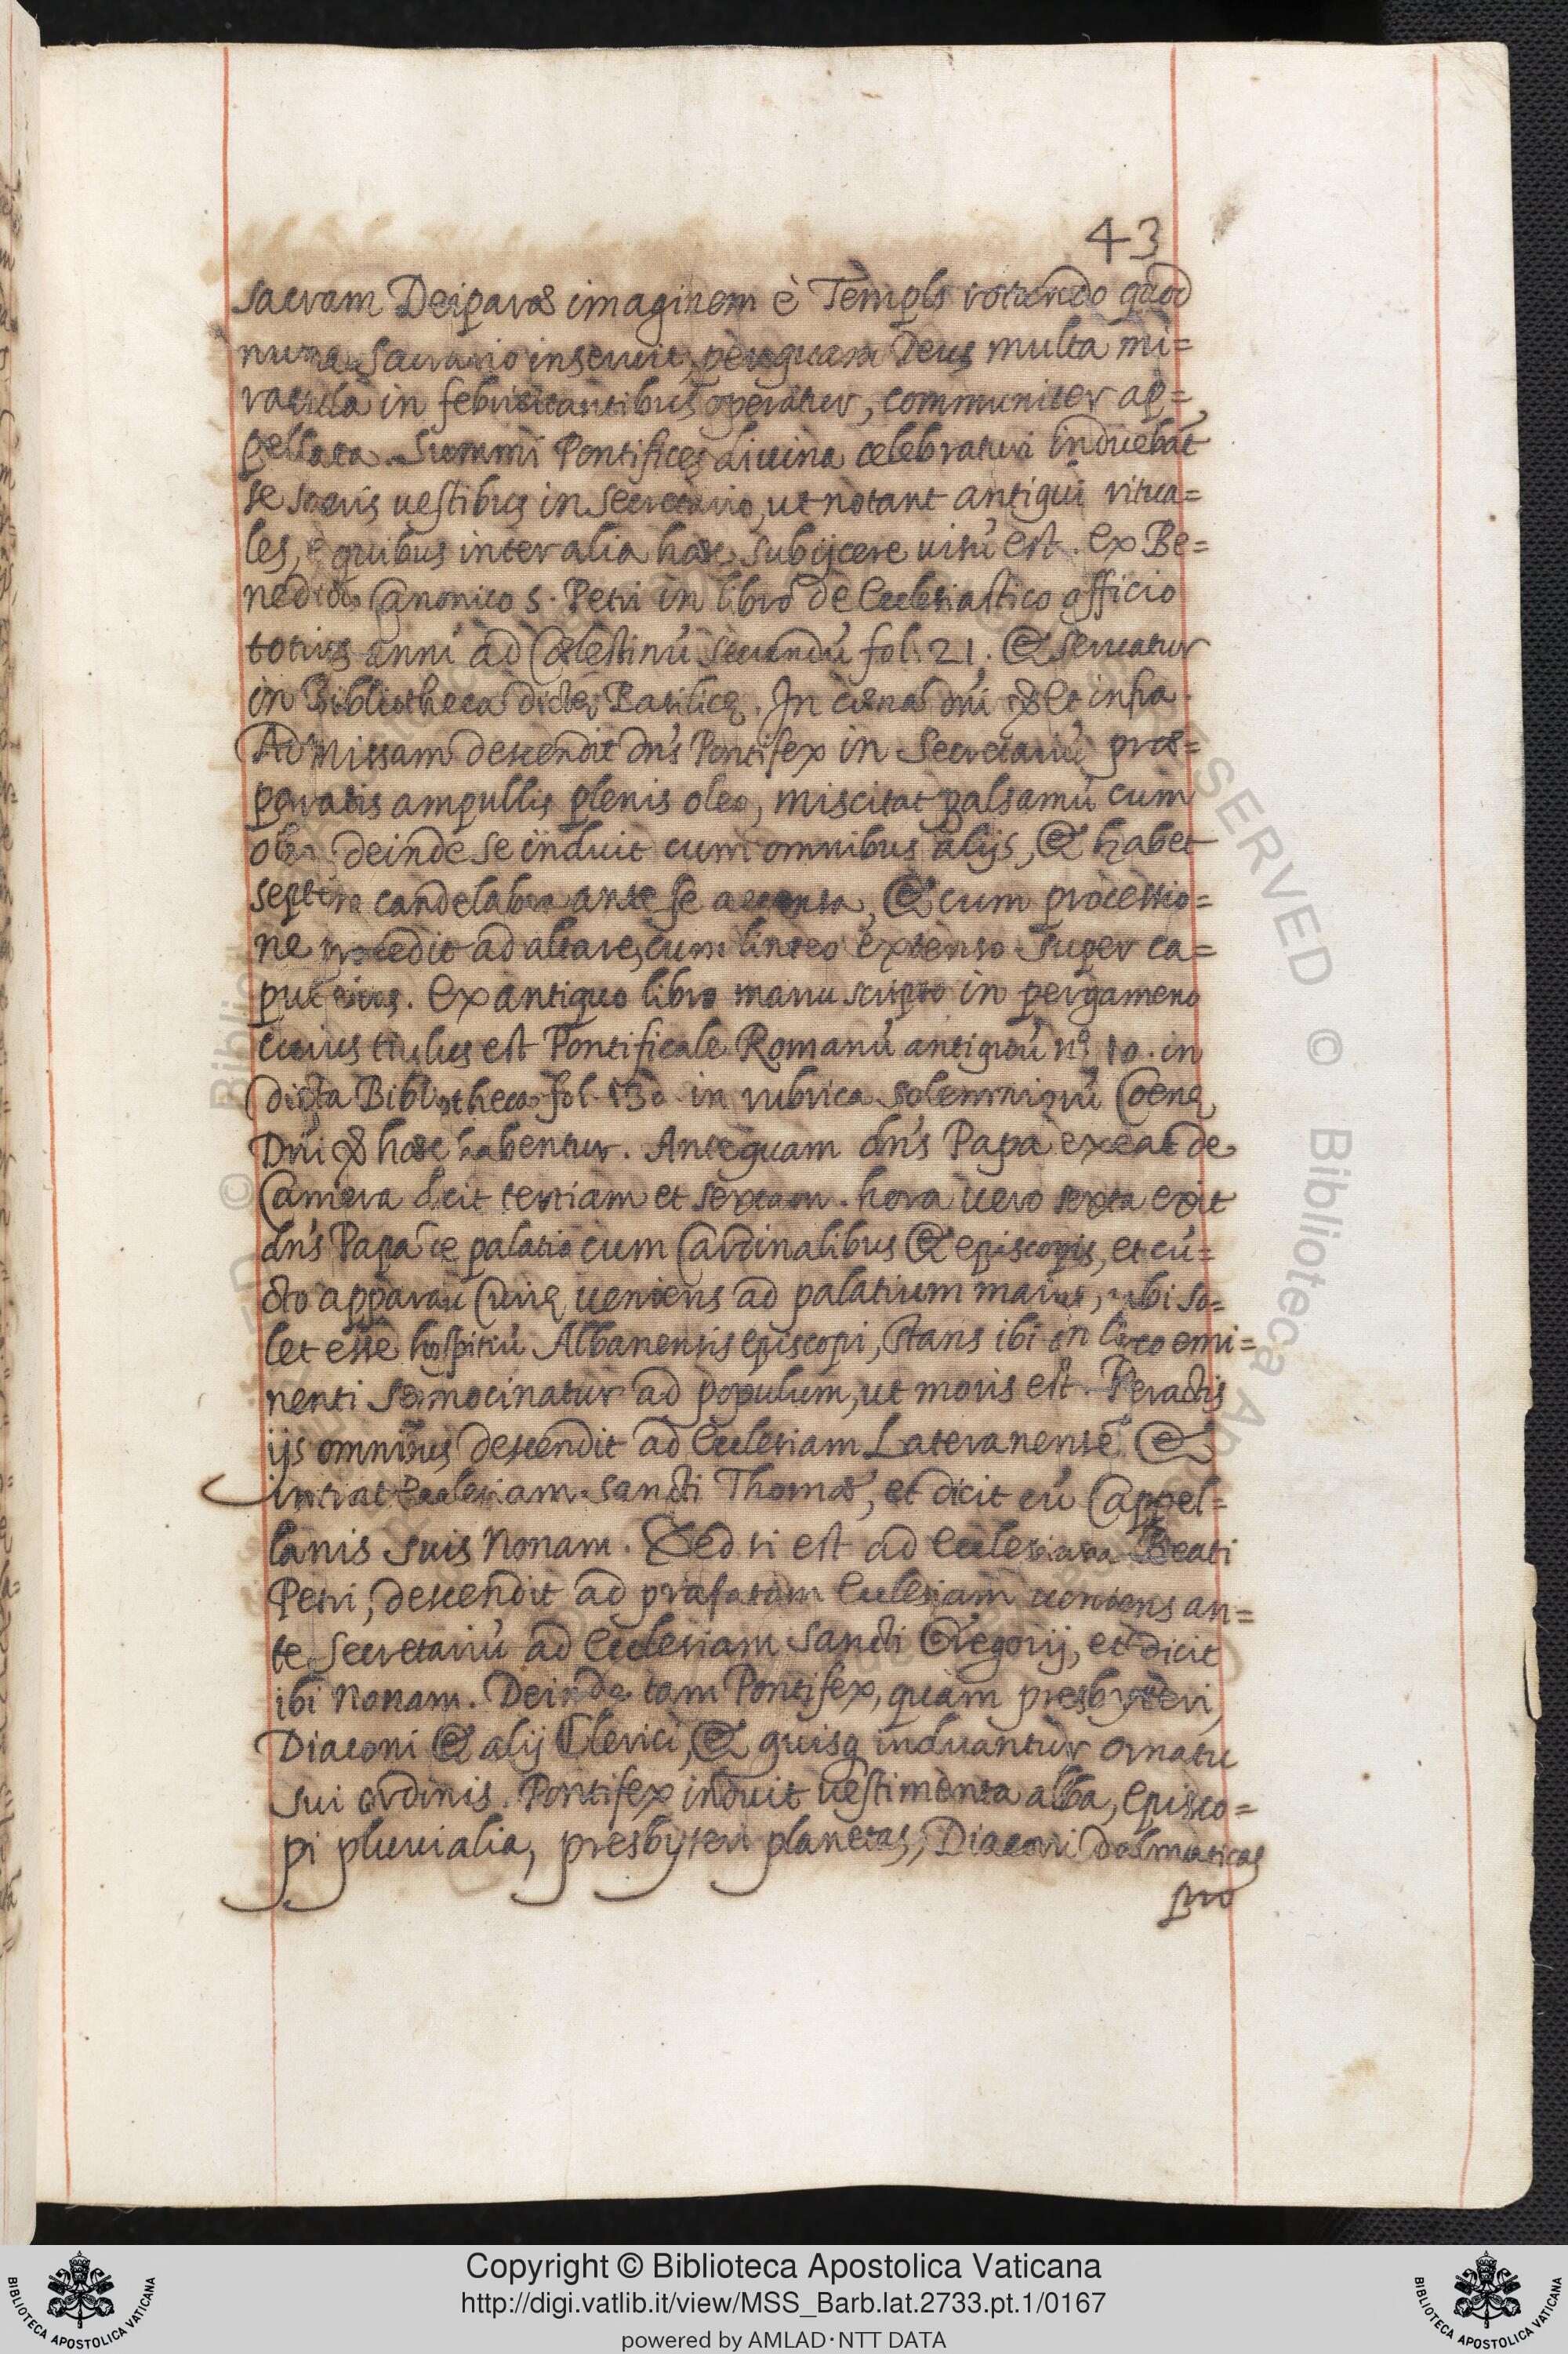 43
sacram Deiparæ imaginem è Templo rotundo quod
nunc Sacrario inseruit, per quam Deus multa mi=
racula in febricitantibus operatur, communiter ap=
pellata. Summi Pontifices diuina celebraturi induebāt
se sacris uestibus in secretario, ut notant antiqui ritua=
les, è quibus inter alia hæc subijcere uisū est. Ex Be=
nedicto Canonico S. Petri in libro de Ecclesiastico officio
totius anni ad Cælestinū secundū fol. 21. & seruatur
in Bibliotheca dictæ Basilicę. In cæna dni et infra.
Ad Missam descendit dn's Pontifex in Secretariū præ=
paratis ampullis plenis oleo, miscitat balsamū cum
oleo, deinde se induit cum omnibus alijs, & habet
septem candelabra ante se accensa, & cum processio=
ne procedit ad altare, cum linteo extenso super ca=
put eius. Ex antiquo libro manu scripto in pergameno
cuius titulus est Pontificale Romanū antiquū nº 10. in
dicta Bibliotheca fol. 130 in rubrica solemniorū Coenę
Dni hæc habentur. Antequam dn's Papa exeat de
Camera dicit tertiam et sextam. hora uero sexta exit
dn's Papa de palatio cum Cardinalibus & episcopis, et cū=
cto apparatu Curię ueniens ad palatium maius, ubi so=
let esse hospitiū Albanensis episcopi, stans ibi in loco emi=
nenti sermocinatur ad populum, ut moris est. Peractis
ijs omnibus descendit ad Ecclesiam Lateranensē &
intrat Ecclesiam sancti Thomæ, et dicit cū Cappel=
lanis suis Nonam. Sed si est ad Ecclesiam Beati
Petri, descendit ad præfatam Ecclesiam ueniens an=
te Secretariū ad Ecclesiam sancti Gregorij, et dicit
ibi Nonam. Deinde tam Pontifex, quam presbyteri,
Diaconi & alij Clerici, & quisq induantur ornatu
sui ordinis. Pontifex induit uestimenta alba, Episco=
pi pluuialia, presbyteri planetas, Diaconi dalmaticas
pro
Copyright © Biblioteca Apostolica Vaticana
http://digi.vatlib.it/view/MSS_Barb.lat.2733.pt.1/0167
powered by AMLAD·NTT DATA
BIBLIOTECA APOSTOLICA VATICANA
BIBLIOTECA APOSTOLICA VATICANA